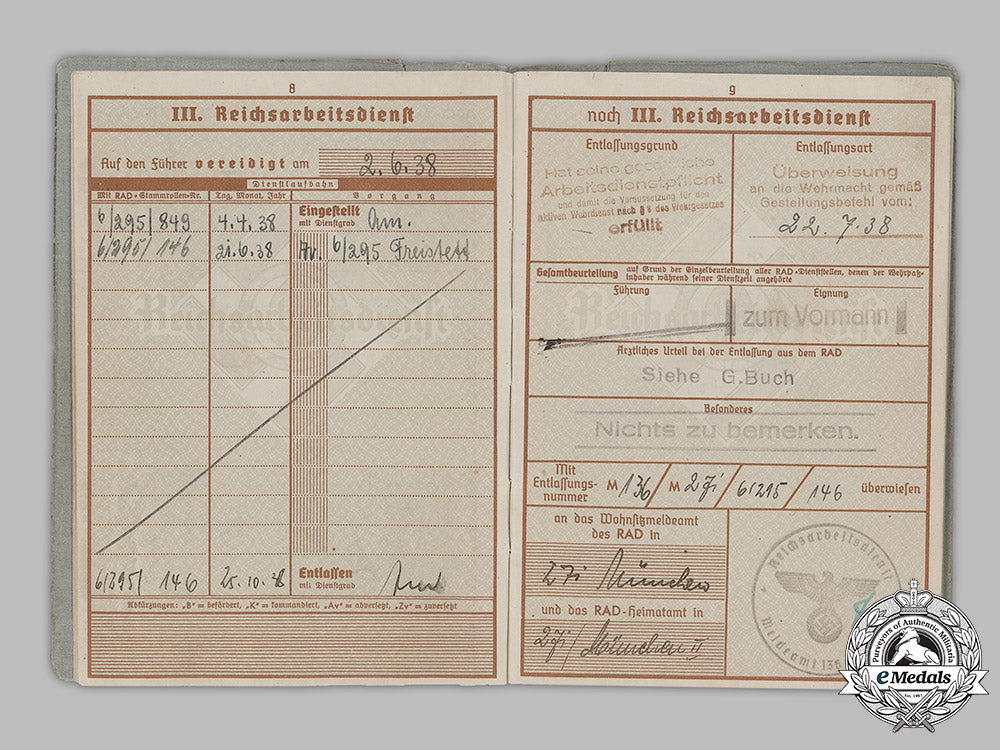 8
III. Reichsarbeitsdienst
Auf den Führer vereidigt am 2.6.38
Dienstlaufbahn
Mit RAD-Stammrollen-Nr. Tag, Monat, Jahr Vorgang
6/295/849 4.4.38 Eingestellt mit Dienstgrad Am.
6/295/146 21.6.38 Av. 6/295 Freistett
Reichsarbeitsdienst
6/295/ 146 25.10.38 Entlassen mit Dienstgrad
Abkürzungen: „B" = befördert, „K" = kommandiert, „Av" = abversetzt, „Zv" = zuversetzt
9
noch III. Reichsarbeitsdienst
Entlassungsgrund
Hat seine gesetzliche
Arbeitsdienstpflicht
und damit die Voraussetzung für den
aktiven Wehrdienst nach § 8 des Wehrgesetzes
erfüllt
Entlassungsart
Überweisung
an die Wehrmacht gemäß
Gestellungsbefehl vom:
22.7.38
Gesamtbeurteilung auf Grund der Einzelbeurteilung aller RAD-Dienststellen, denen der Wehrpaß-
inhaber während seiner Dienstzeit angehörte
Führung
Eignung
zum Vormann
Reichsarbeitsdienst
Ärztliches Urteil bei der Entlassung aus dem RAD
Siehe G.Buch
Besonderes
Nichts zu bemerken.
Mit
Entlassungs-
nummer M 136/ M 27i/ 6/295/ 146 überwiesen
an das Wohnsitzmeldeamt
des RAD in
27i München
und das RAD-Heimatamt in
27i/ München II
Reichsarbeitsdienst
Meldeamt 136
Purveyors of Authentic Militaria
eMedals
Est. 1967